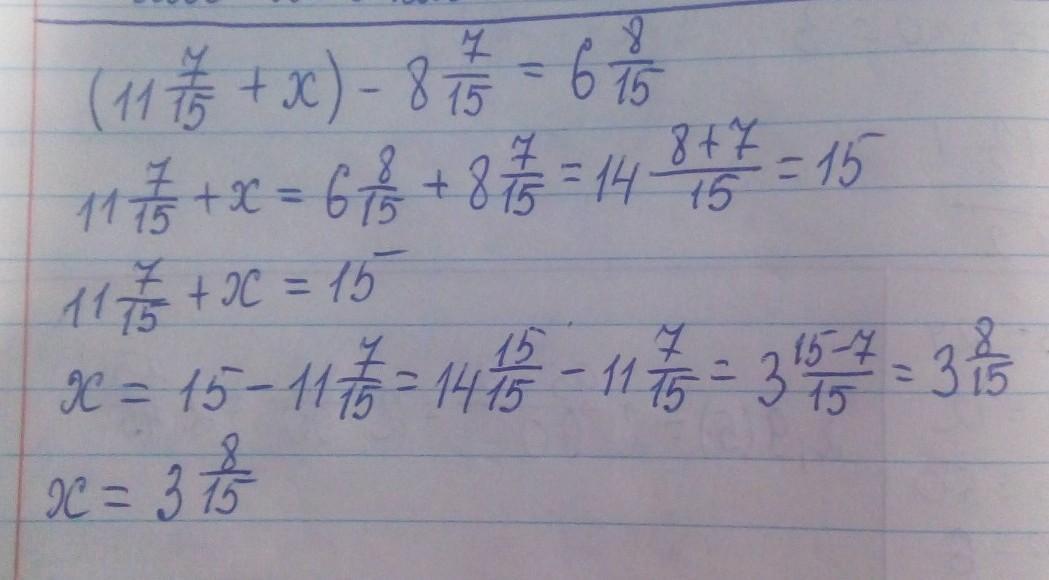 (11 7/15 + x) - 8 7/15 = 6 8/15
11 7/15 + x = 6 8/15 + 8 7/15 = 14 8+7/15 = 15
11 7/15 + x = 15
x = 15 - 11 7/15 = 14 15/15 - 11 7/15 = 3 15-7/15 = 3 8/15
x = 3 8/15